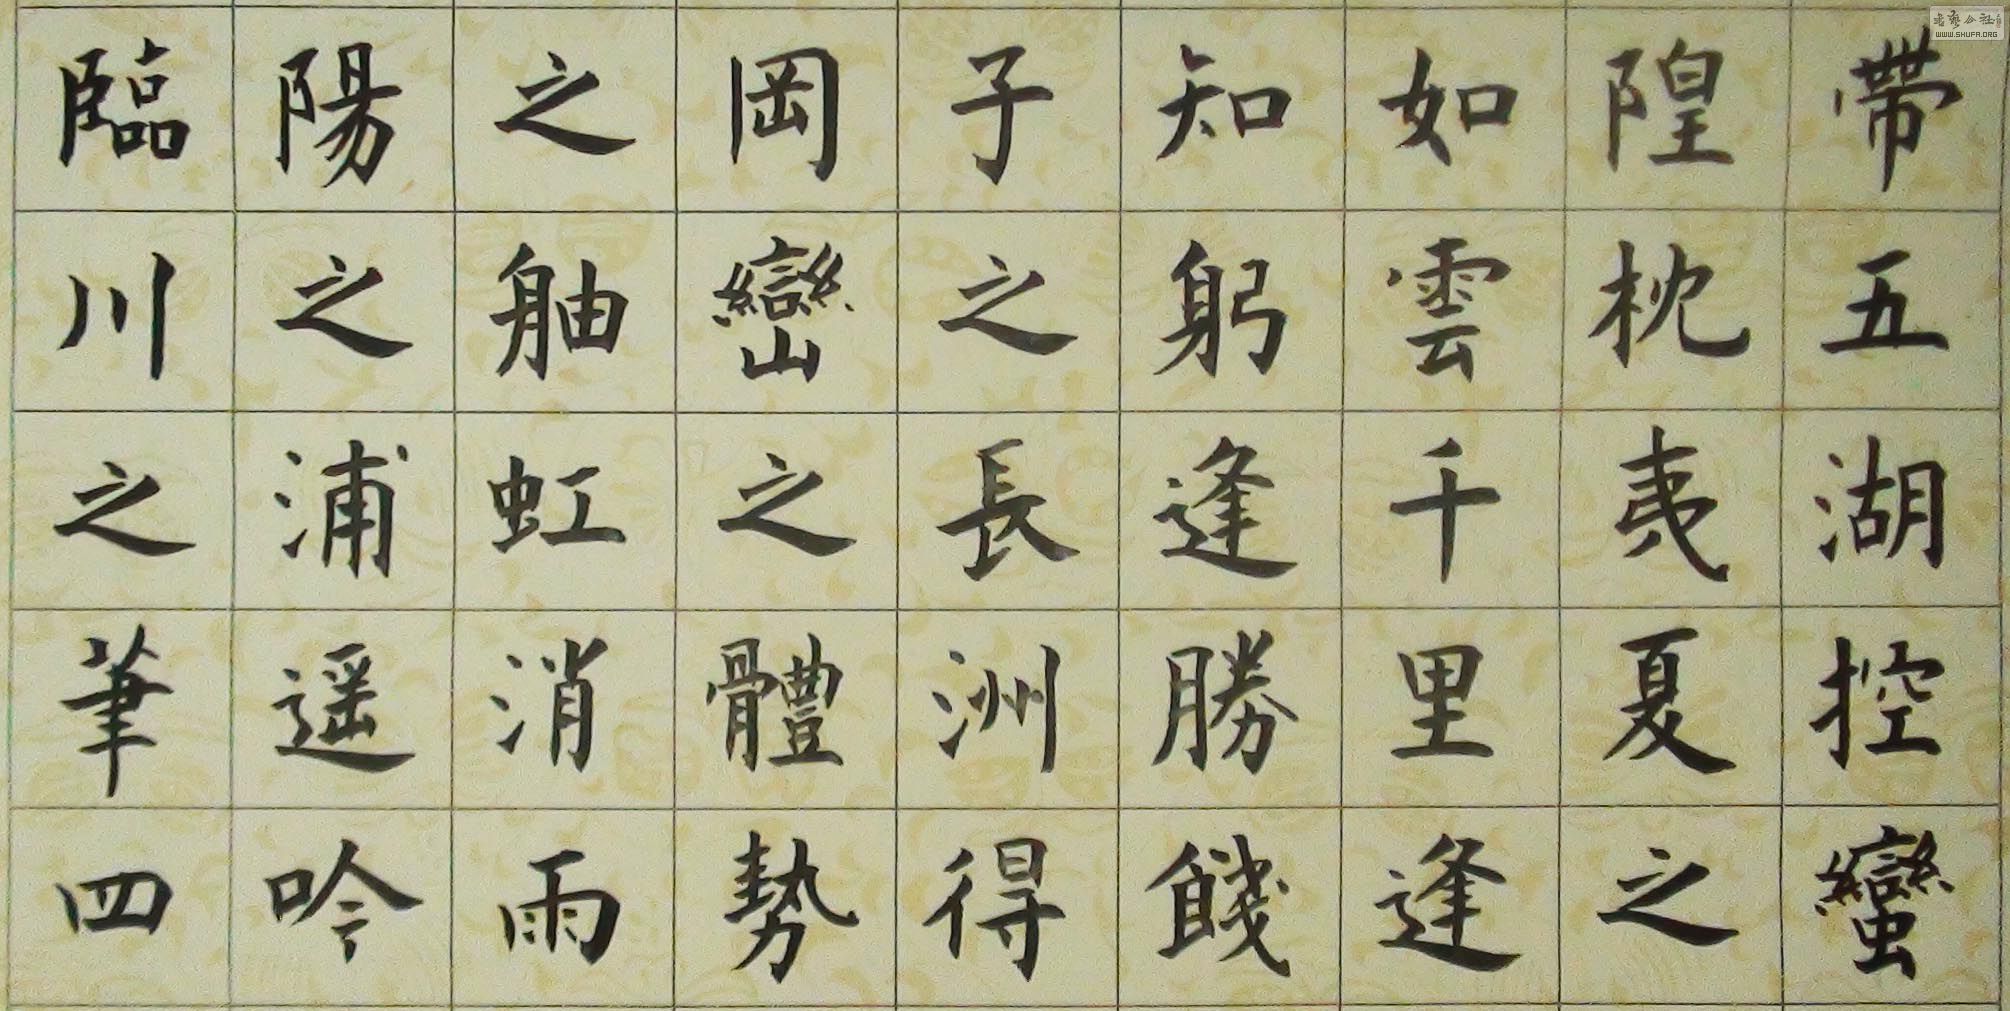 帶五湖控蠻
隍枕夷夏之
如雲千里逢
知躬逢勝餞
子之長洲得
岡巒之體勢
之舳虹消雨
陽之浦遥吟
臨川之筆四
WWW.SHUFA.ORG